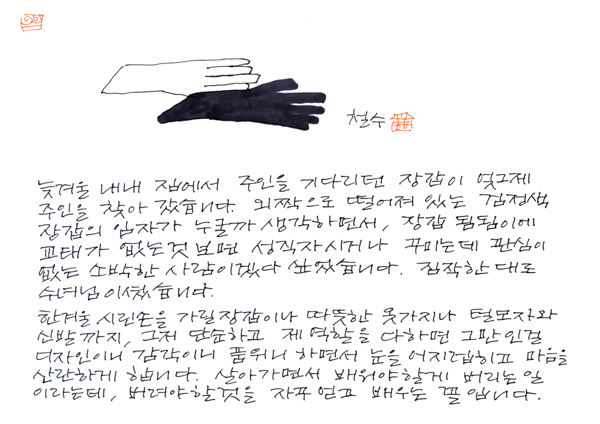 철수
늦겨울 내내 집에서 주인을 기다리던 장갑이 엊그제
주인을 찾아 갔습니다. 외짝으로 떨어져 있는 검정색
장갑의 임자가 누굴까 생각하면서, 장갑 됨됨이에
교태가 없는것 보면 성직자시거나 꾸미는데 관심이
없는 소박한 사람이겠다 싶었습니다. 짐작한 대로
수녀님이셨습니다.
한겨울 시린손을 가릴 장갑이나 따뜻한 옷가지나 털모자와
신발까지, 그저 단순하고 제 역할을 다하면 그만인걸
디자인이니 감각이니 품위니 하면서 눈을 어지럽히고 마음을
산란하게 합니다. 살아가면서 배워야할게 버리는 일
이라는데, 버려야할것을 자꾸 얻고 배우는 꼴 입니다.